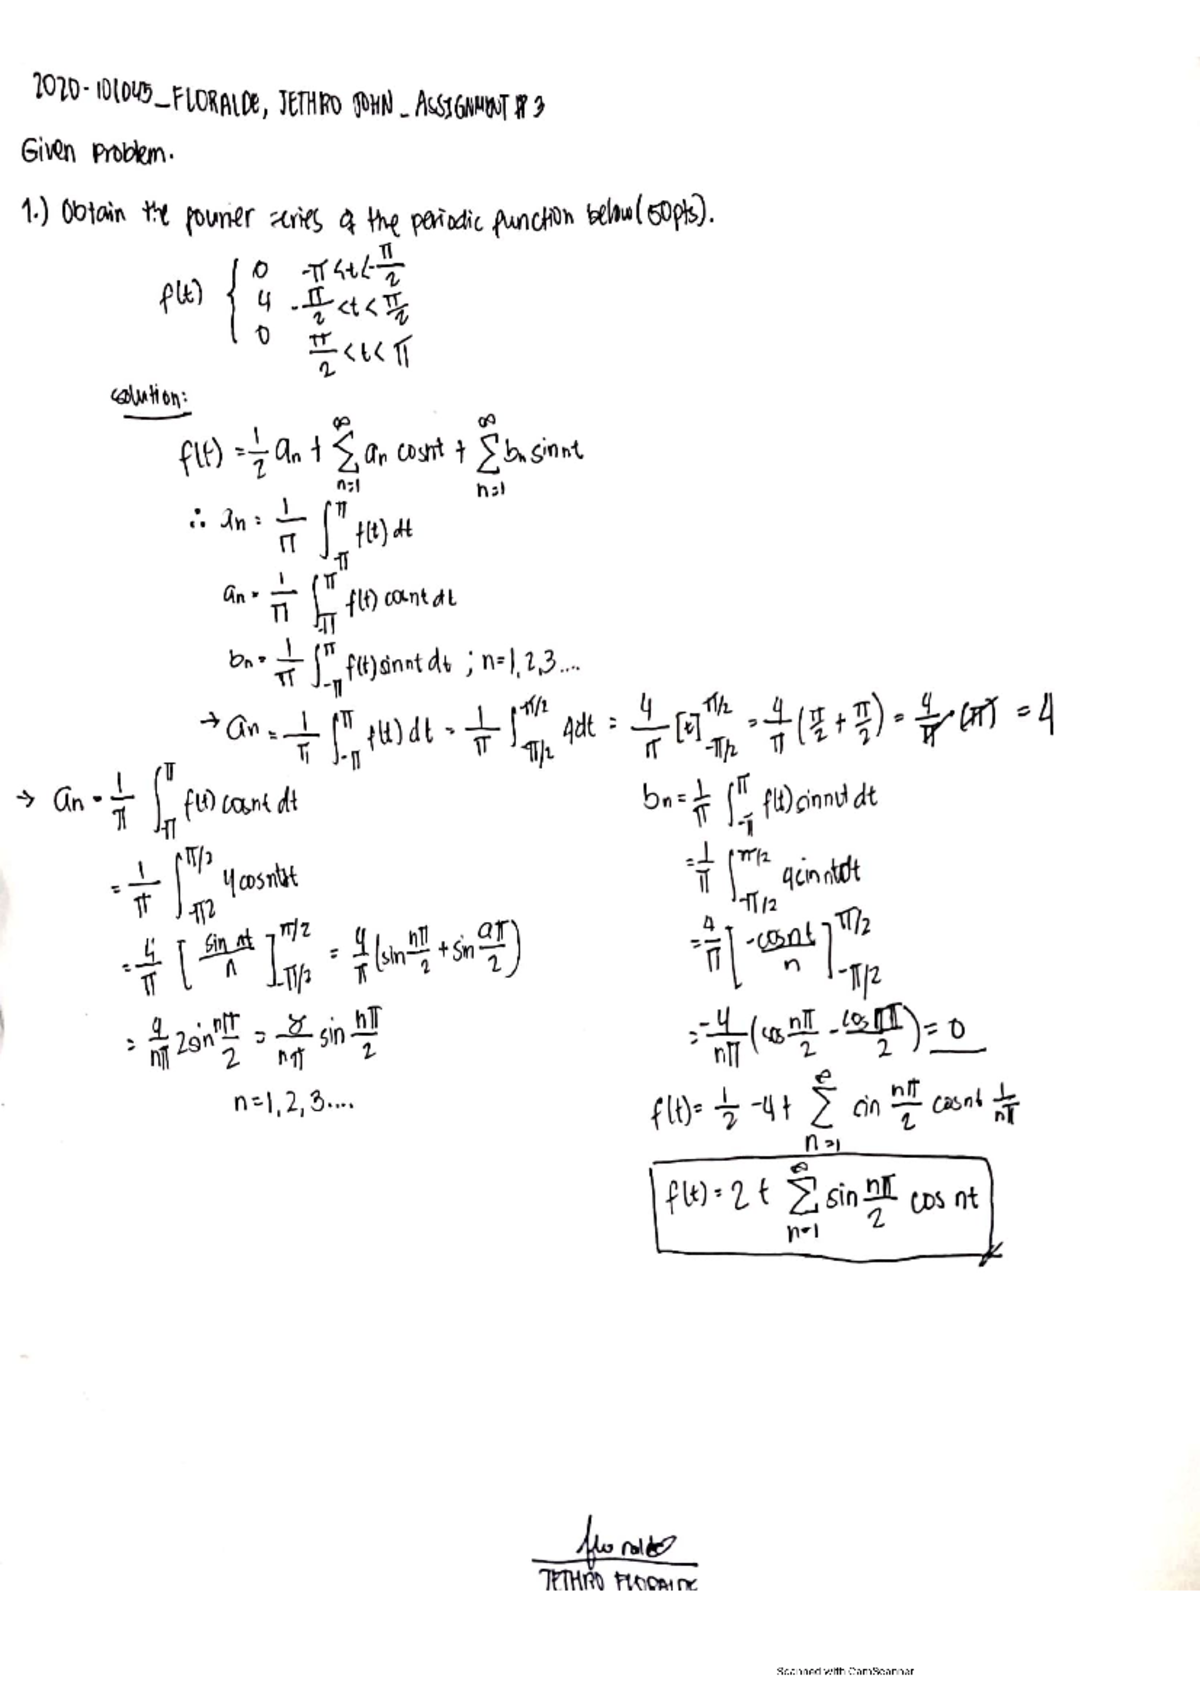 2020-101045_FLORALDE, JETHRO JOHN_ASSIGNMENT # 3
Given Problem.
1.) Obtain the fourier series of the periodic function below (50pts).
f(t) { 0 -π<t<-π/2
4 -π/2<t<π/2
0 π/2<t<π
solution:
f(t) = 1/2 an + ∑ n=1 ∞ an cosnt + ∑ n=1 ∞ bn sinnt
∴ an = 1/π ∫ -π π f(t) dt
an = 1/π ∫ -π π f(t) cosnt dt
bn = 1/π ∫ -π π f(t) sinnt dt ; n=1,2,3....
→ an = 1/π ∫ -π π f(t) dt = 1/π ∫ -π/2 π/2 4dt = 4/π [t] -π/2 π/2 = 4/π (π/2 + π/2) = 4/π (π) = 4
→ an = 1/π ∫ -π π f(t) cosnt dt
= 1/π ∫ -π/2 π/2 4cosntdt
= 4/π [sin nt / n] -π/2 π/2 = 4/π (sin nπ/2 + sin aπ/2)
= 4/nπ 2sin nπ/2 = 8/nπ sin nπ/2
n=1,2,3....
bn = 1/π ∫ -π π f(t) sinnt dt
= 1/π ∫ -π/2 π/2 4sinntdt
= 4/π [-cosnt / n] -π/2 π/2
= -4/nπ (cos nπ/2 - cos nπ/2) = 0
f(t) = 1/2 -4+ ∑ n=1 ∞ sin nπ/2 cosnt 1/nπ
f(t) = 2 + ∑ n=1 ∞ sin nπ/2 cos nt
floralde
JETHRO FLORALDE
Scanned with CamScanner